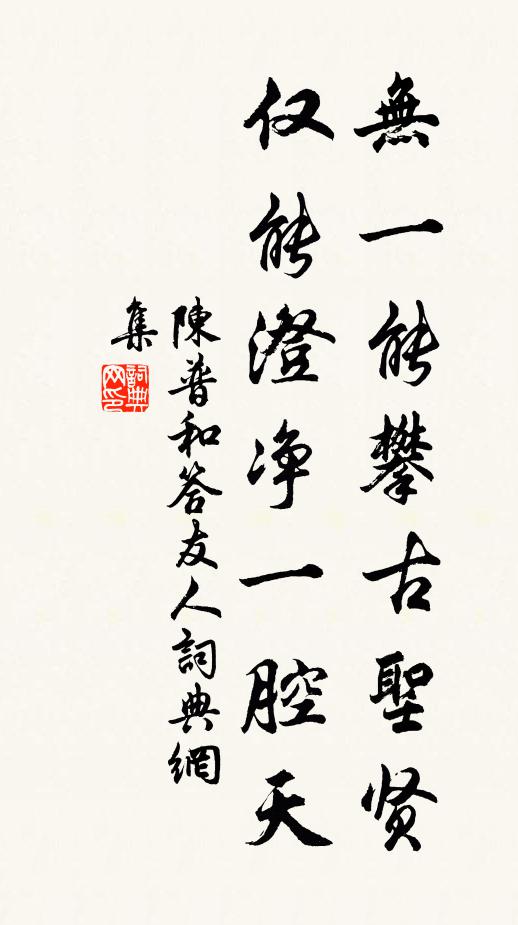 無一能攀古聖贤
仅能澄净一腔天
陳普和答友人詞典網
集
詞典网印